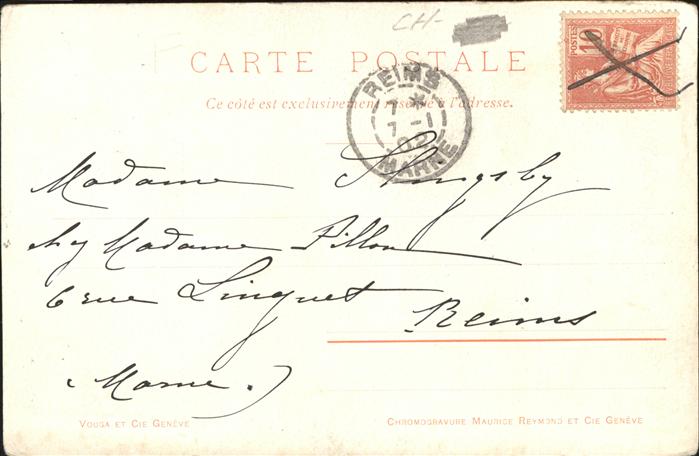 CH-
CARTE POSTALE
POSTES 10
REIMS
7 *
7 -1
02
MARNE
Ce côté est exclusivement réservé à l'adresse.
Madame Slingsby
chez Madame Pillon
6 rue Linguet
Reims
(Marne.)
VOUGA ET CIE GENÈVE
CHROMOGRAVURE MAURICE REYMOND ET CIE GENÈVE